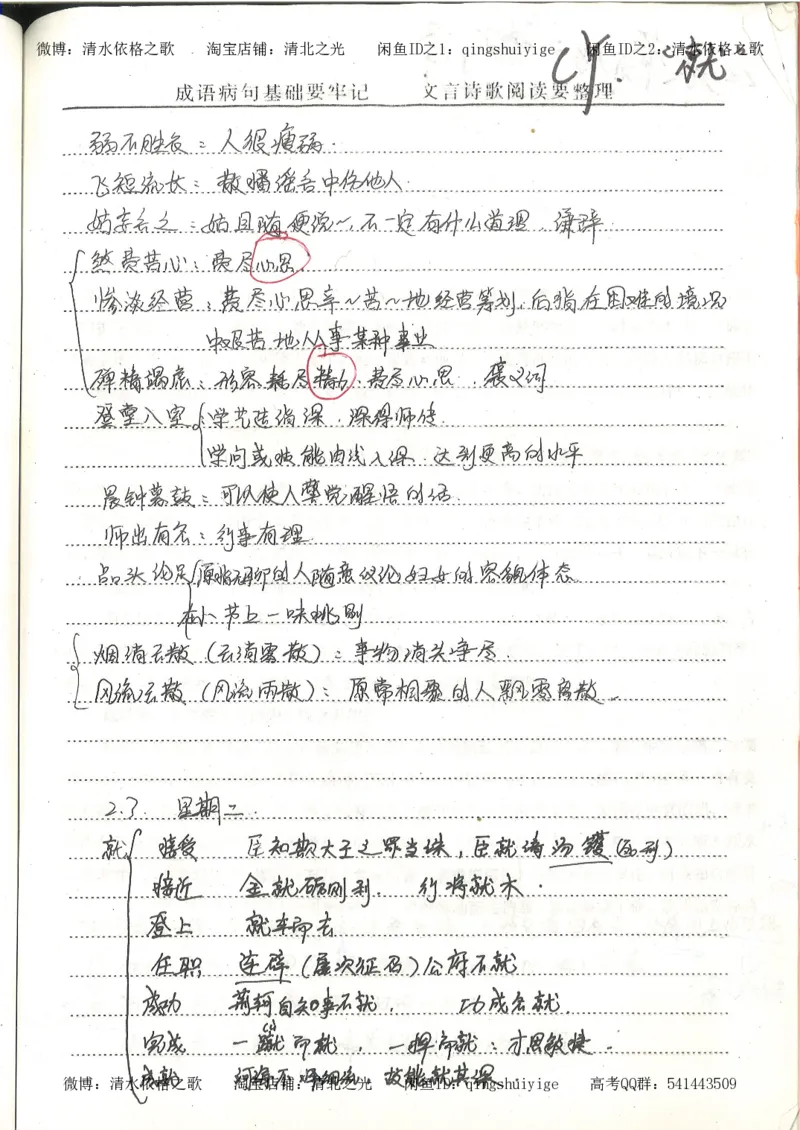 微博：清水依格之歌 淘宝店铺：清北之光 闲鱼ID之1：qingshuiyige 闲鱼ID之2：清水依格之歌
CY. 就
成语病句基础要牢记 文言诗歌阅读要整理
弱不胜衣：人很瘦弱.
飞短流长：散播谣言中伤他人
姑妄言之：姑且随便说~，不一定有什么道理．谦辞
煞费苦心：费尽心思
惨淡经营：费尽心思辛~苦~地经营筹划．后指在困难的境况
中艰苦地从事某种事业
殚精竭虑：形容耗尽精力．费尽心思．褒义词
登堂入室 学艺造诣深．深得师传．
学问或技能由浅入深．达到更高的水平
晨钟暮鼓：可以使人警觉醒悟的话．
师出有名：行事有理
品头论足 原指无聊的人随意议论妇女的容貌体态
在小节上一味挑剔
烟消云散（云消雾散）：事物消失净尽．
风流云散（风流雨散）：原常相聚的人飘零离散．
2.3. 星期二．
就 接受 臣知欺大王之罪当诛，臣就请汤镬（酷刑）
接近 金就砺则利． 行将就木．
登上 就车而去
任职 连辟（屡次征召）公府不就
成功 荆轲自知事不就， 功成名就．
完成 一蹴而就，一挥而就：才思敏捷．
成就 河海不择细流，故能就其深
微博：清水依格之歌 淘宝店铺：清北之光 闲鱼ID之1：qingshuiyige 高考QQ群：541443509